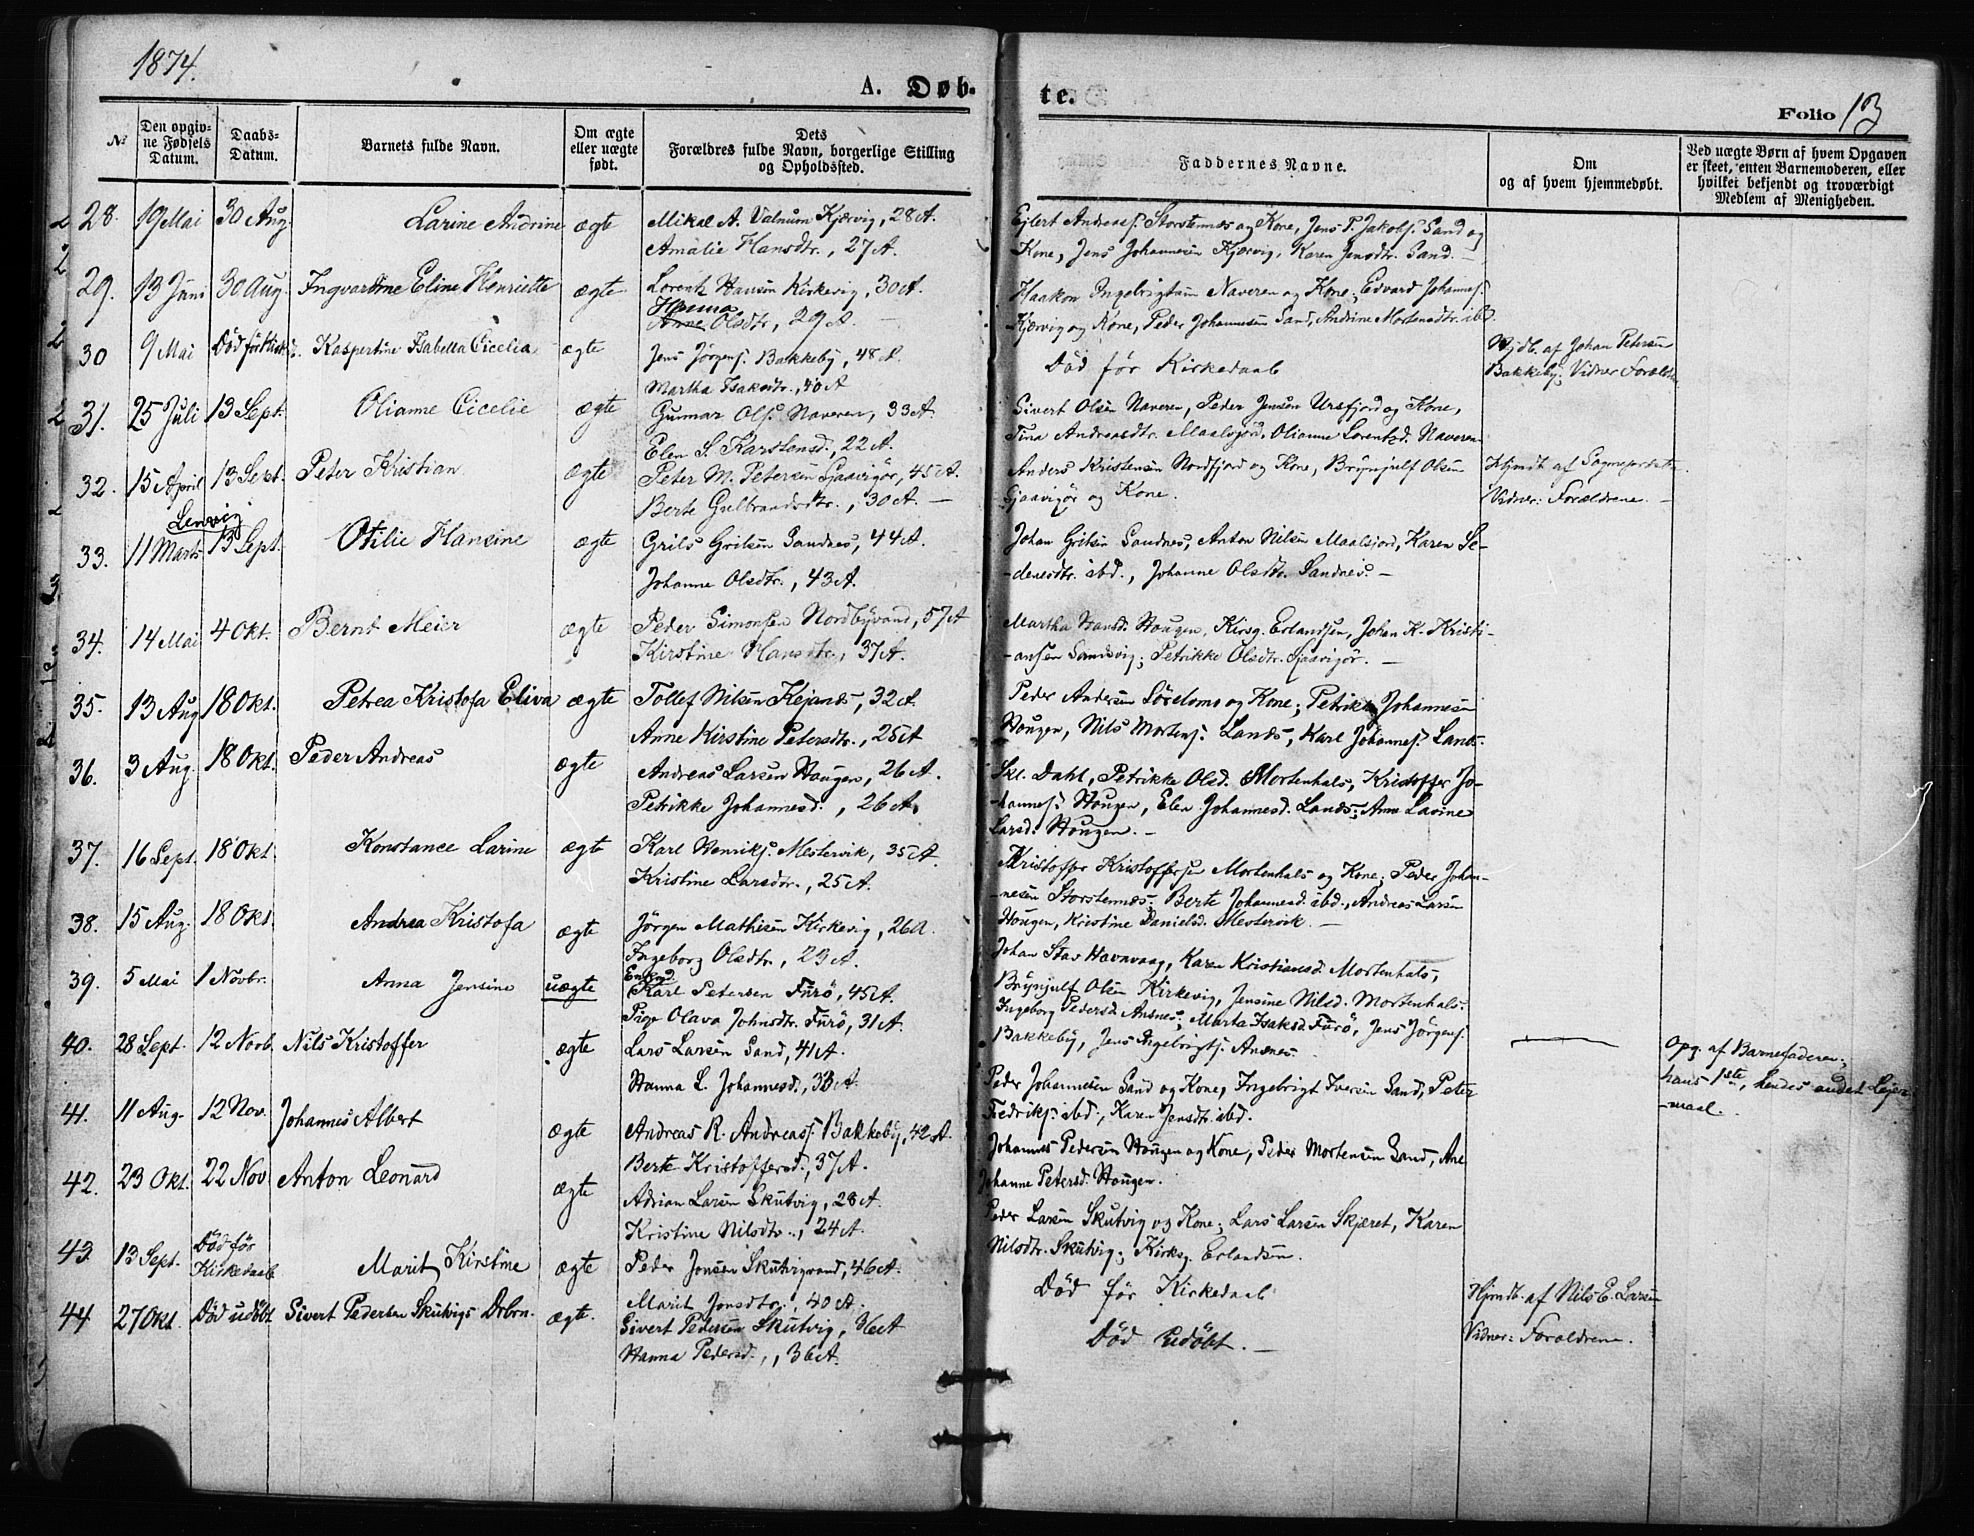 1874.
A. Døb- te.
Folio 13
№
Den opgiv-
ne Fødsels
Datum.
Daabs-
Datum.
Barnets fulde Navn.
Om ægte
eller uægte
født.
Dets
Forældres fulde Navn, borgerlige Stilling
og Opholdssted.
Faddernes Navne.
Om
og af hvem hjemmedøbt.
Ved uægte Børn af hvem Opgaven
er skeet, enten Barnemoderen, eller
hvilket bekjendt og troværdigt
Medlem af Menigheden.
28. 19 Mai 30 Aug Larine Andrine ægte Mikal A. Valnum Kjærvig, 28 A. Ejlert Andreas. Storstennes og Kone, Jens P. Jakobs. Sand og
Amalie Hansdtr., 27 A. Kone, Jens Johannesen Kjærvig, Karen Jensdtr. Sand. —
29. 13 Juni 30 Aug. Ingvardine Eline Henriette ægte Lorents Hansen Kirkevig, 30 A. Haakon Ingebrigtsen Naveren og Kone, Edvard Johannes.
Hanna
Anne Olsdtr., 29 A. — Kjærvig og Kone, Peder Johannesen Sand, Andrine Mortensdtr. ibd
30 9 Mai Død før Kirked. Kaspertine Isabella Cicelia ægte Jens Jørgens. Bakkeby, 48 A. Død før Kirkedaab Hjdb. af Johan Petersen
Martha Isaksdtr., 40 A Bakkeby; Vidner Foræld
31. 25 Juli 13 Sept. Olianne Cicelie ægte Gunnar Ols. Naveren, 33 A. Sivert Olsen Naveren, Peder Jensen Ursfjord og Kone,
Elen S. Karstensd., 22 A. Tina Andreasdtr. Maalsjord, Olianne Lorentsd. Naveren
32. 15 April 13 Sept. Peter Kristian ægte Peter M. Petersen Gjaavigør, 45 A. Anders Kristensen Nordfjord og Kone, Brynjulf Olsen Hjmdt. af Sognepræsten
Berte Gulbrandsdtr., 30 A. — Gjaavigør og Kone. Vidner: Forældrene. —
Lenvig
33. 11 Marts 13 Sept. Otilie Hansine ægte Grils Grilsen Sandnes, 44 A. Johan Grilsen Sandnes, Anton Nilsen Maalsjord, Karen Se-
Johanne Olsdtr., 43 A. -denesdtr. ibd., Johanne Olsdtr. Sandnes. —
34. 14 Mai 4 Okt. Bernt Meier ægte Peder Simonsen Nordbyvand, 57 A Martha Hansd. Hougen, Kirsg. Erlandsen, Johan K. Kristi-
Kirstine Hansdtr., 37 A. -ansen Sandvig; Petrikke Olsdtr. Gjaavigør. —
35. 13 Aug 18 Okt. Petrea Kristofa Eliva ægte Tollef Nilsen Kejands, 32 A Peder Andersen Sørelomo og Kone; Petrikke Johannesen
Anne Kirstine Petersdtr., 25 A Hougen, Nils Mortens. Lands, Karl Johannes. Lands.
36. 3 Aug. 18 Okt. Peder Andreas ægte Andreas Larsen Hougen, 26 A. Skl. Dahl, Petrikke Olsd. Mortenhals, Kristoffer Jo-
Petrikke Johannesd., 26 A. -hannes. Hougen, Elen Johannesd. Lands; Anne Lavine
Larsd. Hougen. —
37. 16 Sept. 18 Okt. Konstance Larine ægte Karl Henriks. Mestervik, 35 A. Kristoffer Kristoffersen Mortenhals og Kone; Peder Johan-
Kristine Larsdtr., 25 A. -nesen Storstennes; Berte Johannesd. ibd., Andreas Larsen
38. 15 Aug. 18 Okt. Andrea Kristofa ægte Jørgen Mathisen Kirkevig, 26 A. Hougen, Kristine Danielsd. Mestervik. —
Ingeborg Olsdtr., 29 A. Johan Stav Havnvaag, Karen Kristiansd. Mortenhals,
39. 5 Mai 1 Novbr. Anna Jensine uægte Enkmd. Karl Petersen Furø, 45 A. Brynjulf Olsen Kirkevig, Jensine Nilsd. Mortenhals.
Pige Olava Johnsdtr. Furø, 31 A. Ingeborg Pedersd. Ansnes; Marta Isaksd. Furø, Jens Jørgens.
40. 28 Sept. 12 Novb. Nils Kristoffer ægte Lars Larsen Sand, 41 A. Bakkeby, Jens Ingebrigts. Ansnes. Opg. af Barnefaderen;
Hanna L. Johannesd., 33 A. Peder Johannesen Sand og Kone, Ingebrigt Iversen Sand, Peter hans 1ste, hendes andet Lejer-
41. 11 Aug. 12 Nov. Johannes Albert ægte Andreas R. Andreass. Bakkeby, 42 A. Fredriks. ibd., Karen Jensdtr. ibd. -maal.
Berte Kristoffersd., 37 A. Johannes Pedersen Hougen og Kone, Peder Mortensen Sand, Ane
42. 23 Okt. 22 Nov Anton Leonard ægte Adrian Larsen Skutvig, 28 A. Johanne Petersd. Hougen.
Kristine Nilsdtr., 24 A. Peder Larsen Skutvig og Kone; Lars Larsen Skjæret, Karen
43. 13 Sept. Død før Kirkedaab Marit Kirstine ægte Peder Jonsen Skutvigvand, 46 A. Nilsdtr. Skutvig; Kirksg. Erlandsen.
Marit Jonsdtr., 40 A. Død før Kirkedaab Hjmdb. af Nils E. Larsen
44 27 Okt. Død udøbt Sivert Pedersen Skutvigs Dbrn. ægte. Sivert Pedersen Skutvig, 36 A Død udøbt. — Vidner: Forældrene.
Hanna Pedersd., 36 A.